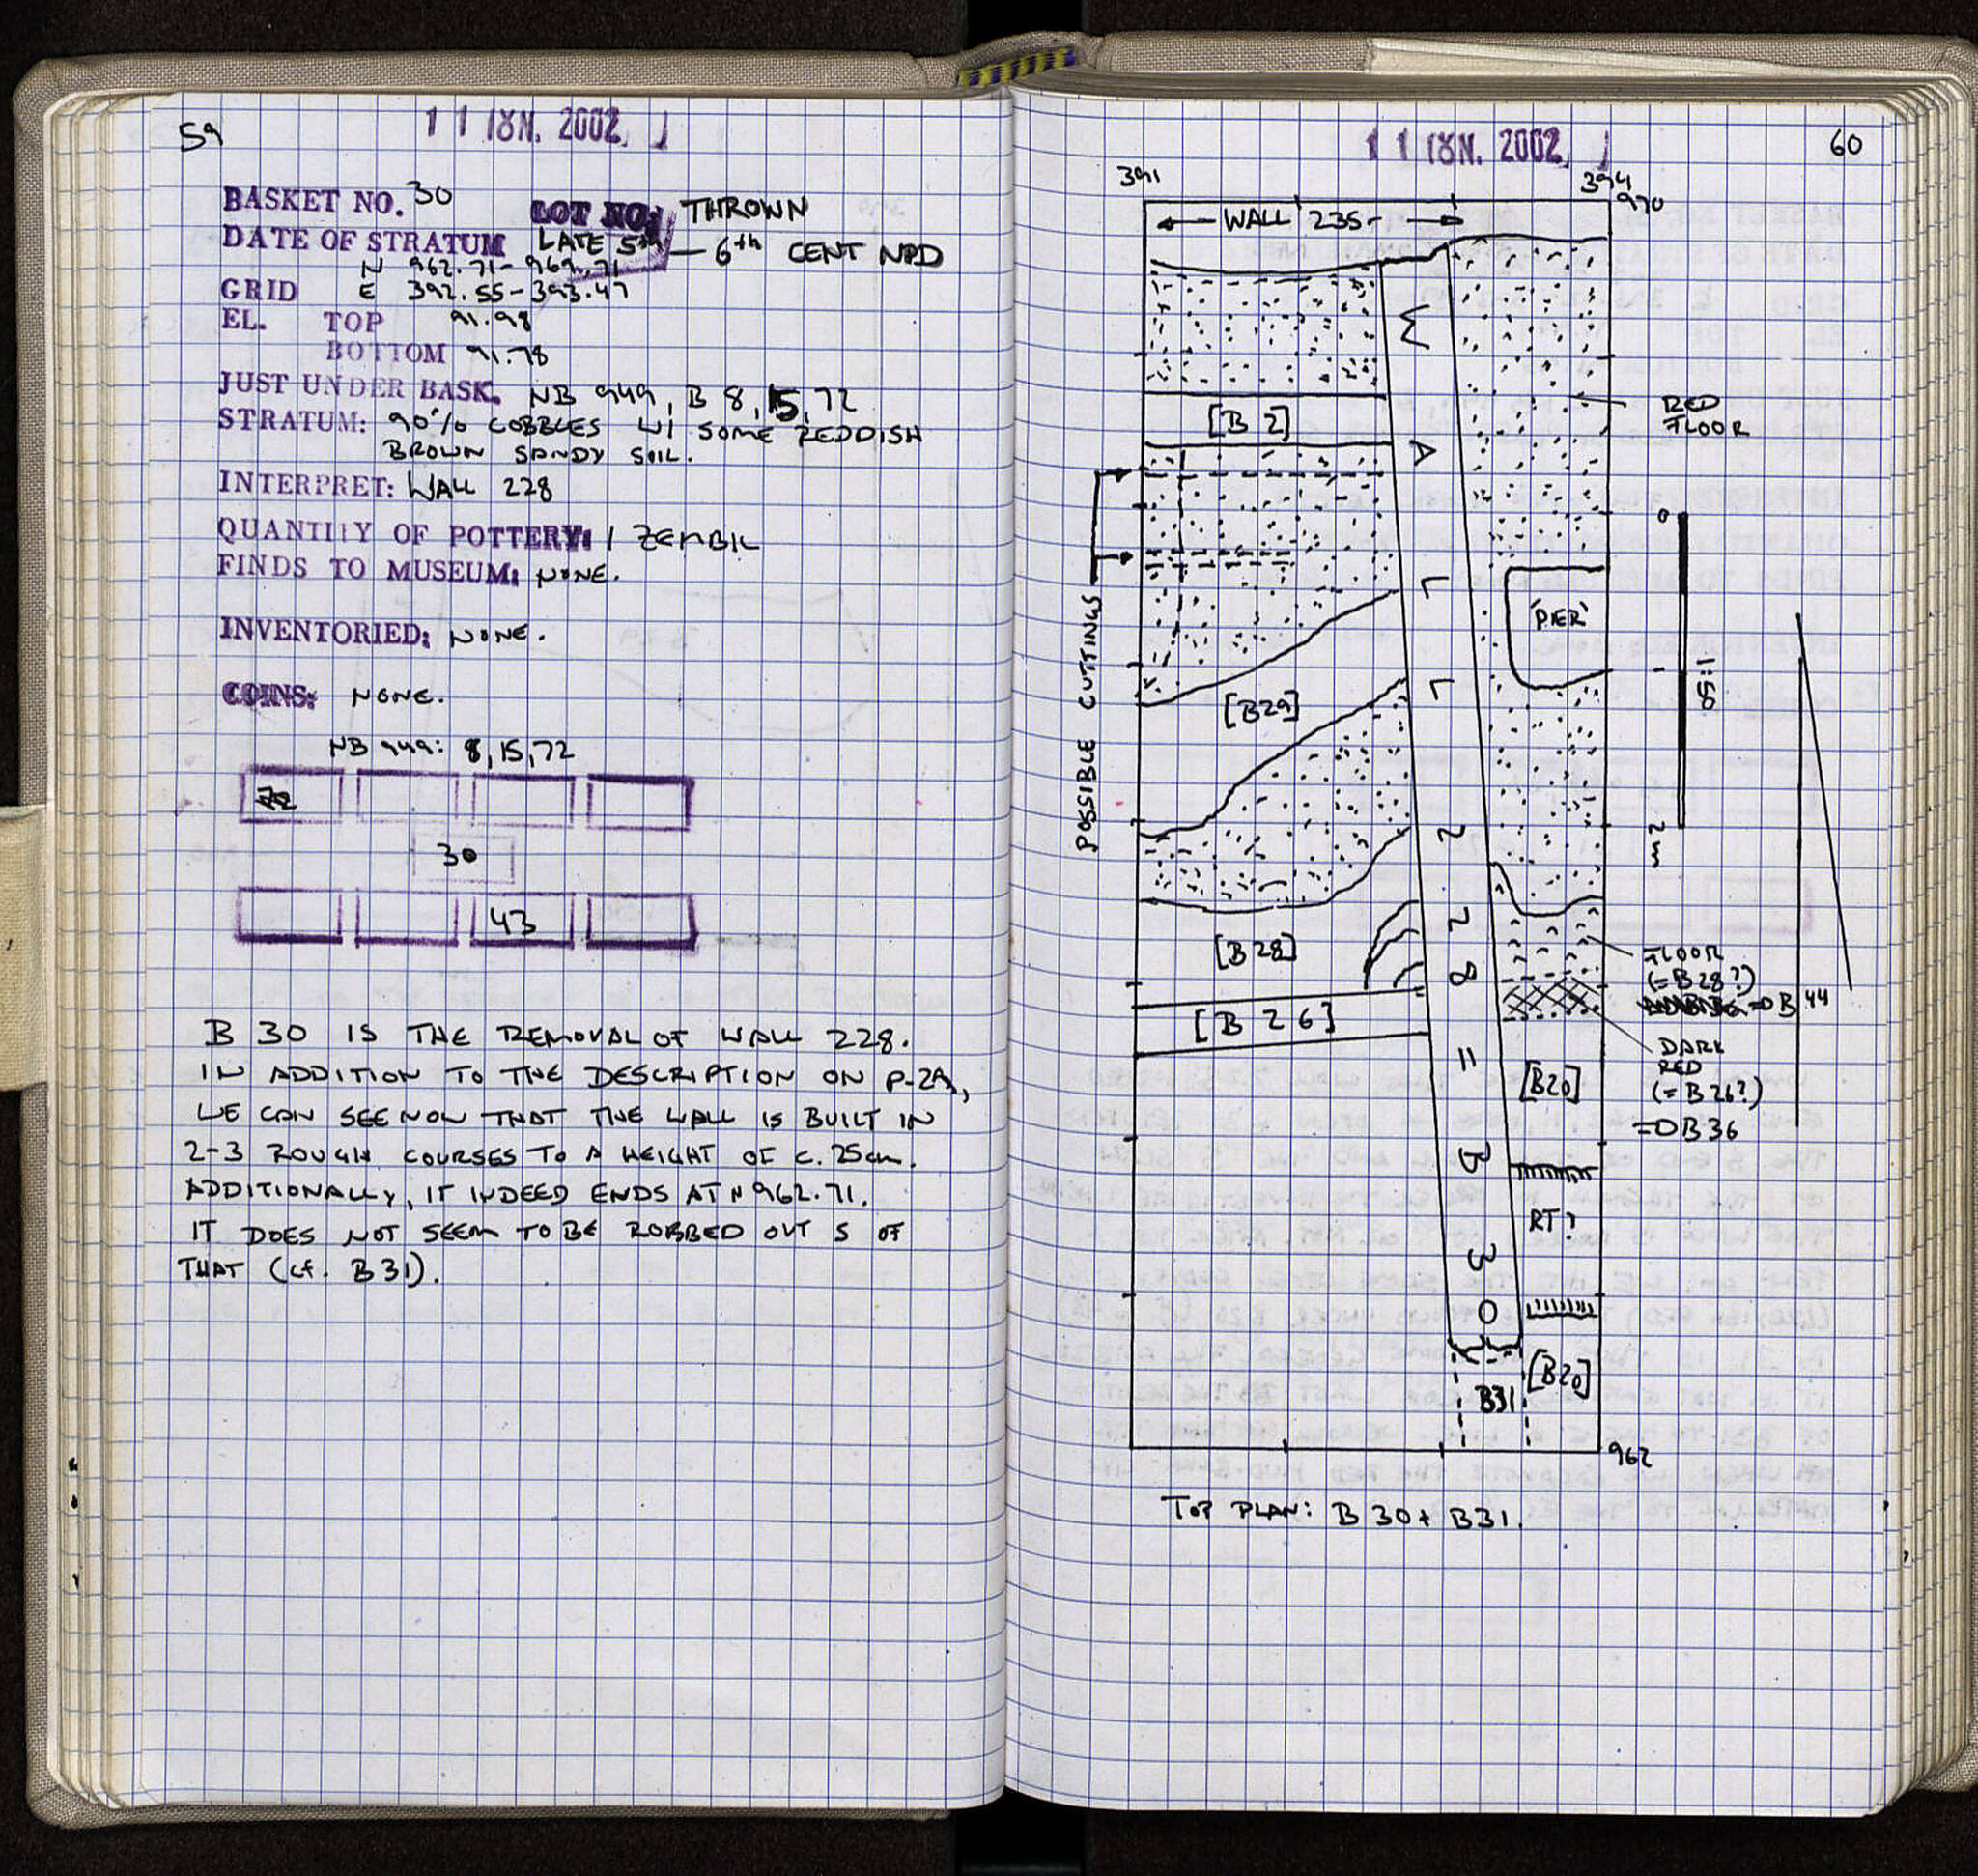 59
11 ΙΟΥΝ. 2002
BASKET NO. 30 LOT NO. THROWN
DATE OF STRATUM LATE 5th — 6th CENT NPD
N 962.71 - 969.71
GRID E 392.55 - 393.47
EL. TOP 91.98
BOTTOM 91.78
JUST UNDER BASK. NB 949, B 8, 15, 72
STRATUM: 90% COBBLES W/ SOME REDDISH
BROWN SANDY SOIL.
INTERPRET: WALL 228
QUANTITY OF POTTERY: 1 ZEMBIL
FINDS TO MUSEUM: NONE.
INVENTORIED: NONE.
COINS: NONE.
NB 949: 8, 15, 72
72
30
43
B 30 IS THE REMOVAL OF WALL 228.
IN ADDITION TO THE DESCRIPTION ON P. 29,
WE CAN SEE NOW THAT THE WALL IS BUILT IN
2-3 ROUGH COURSES TO A HEIGHT OF C. 25cm.
ADDITIONALLY, IT INDEED ENDS AT N 962.71.
IT DOES NOT SEEM TO BE ROBBED OUT S OF
THAT (cf. B 31).
11 ΙΟΥΝ. 2002
60
391
394
970
← WALL 235 →
[B 2]
RED
FLOOR
POSSIBLE CUTTINGS
'PIER'
0
1:50
2m
[B29]
WALL 228 = B 30
[B28]
[B 26]
FLOOR
(= B28?)
= B 44
DARK
RED
(= B26?)
= B36
[B20]
RT?
[B20]
B31
962
TOP PLAN: B 30 + B31.